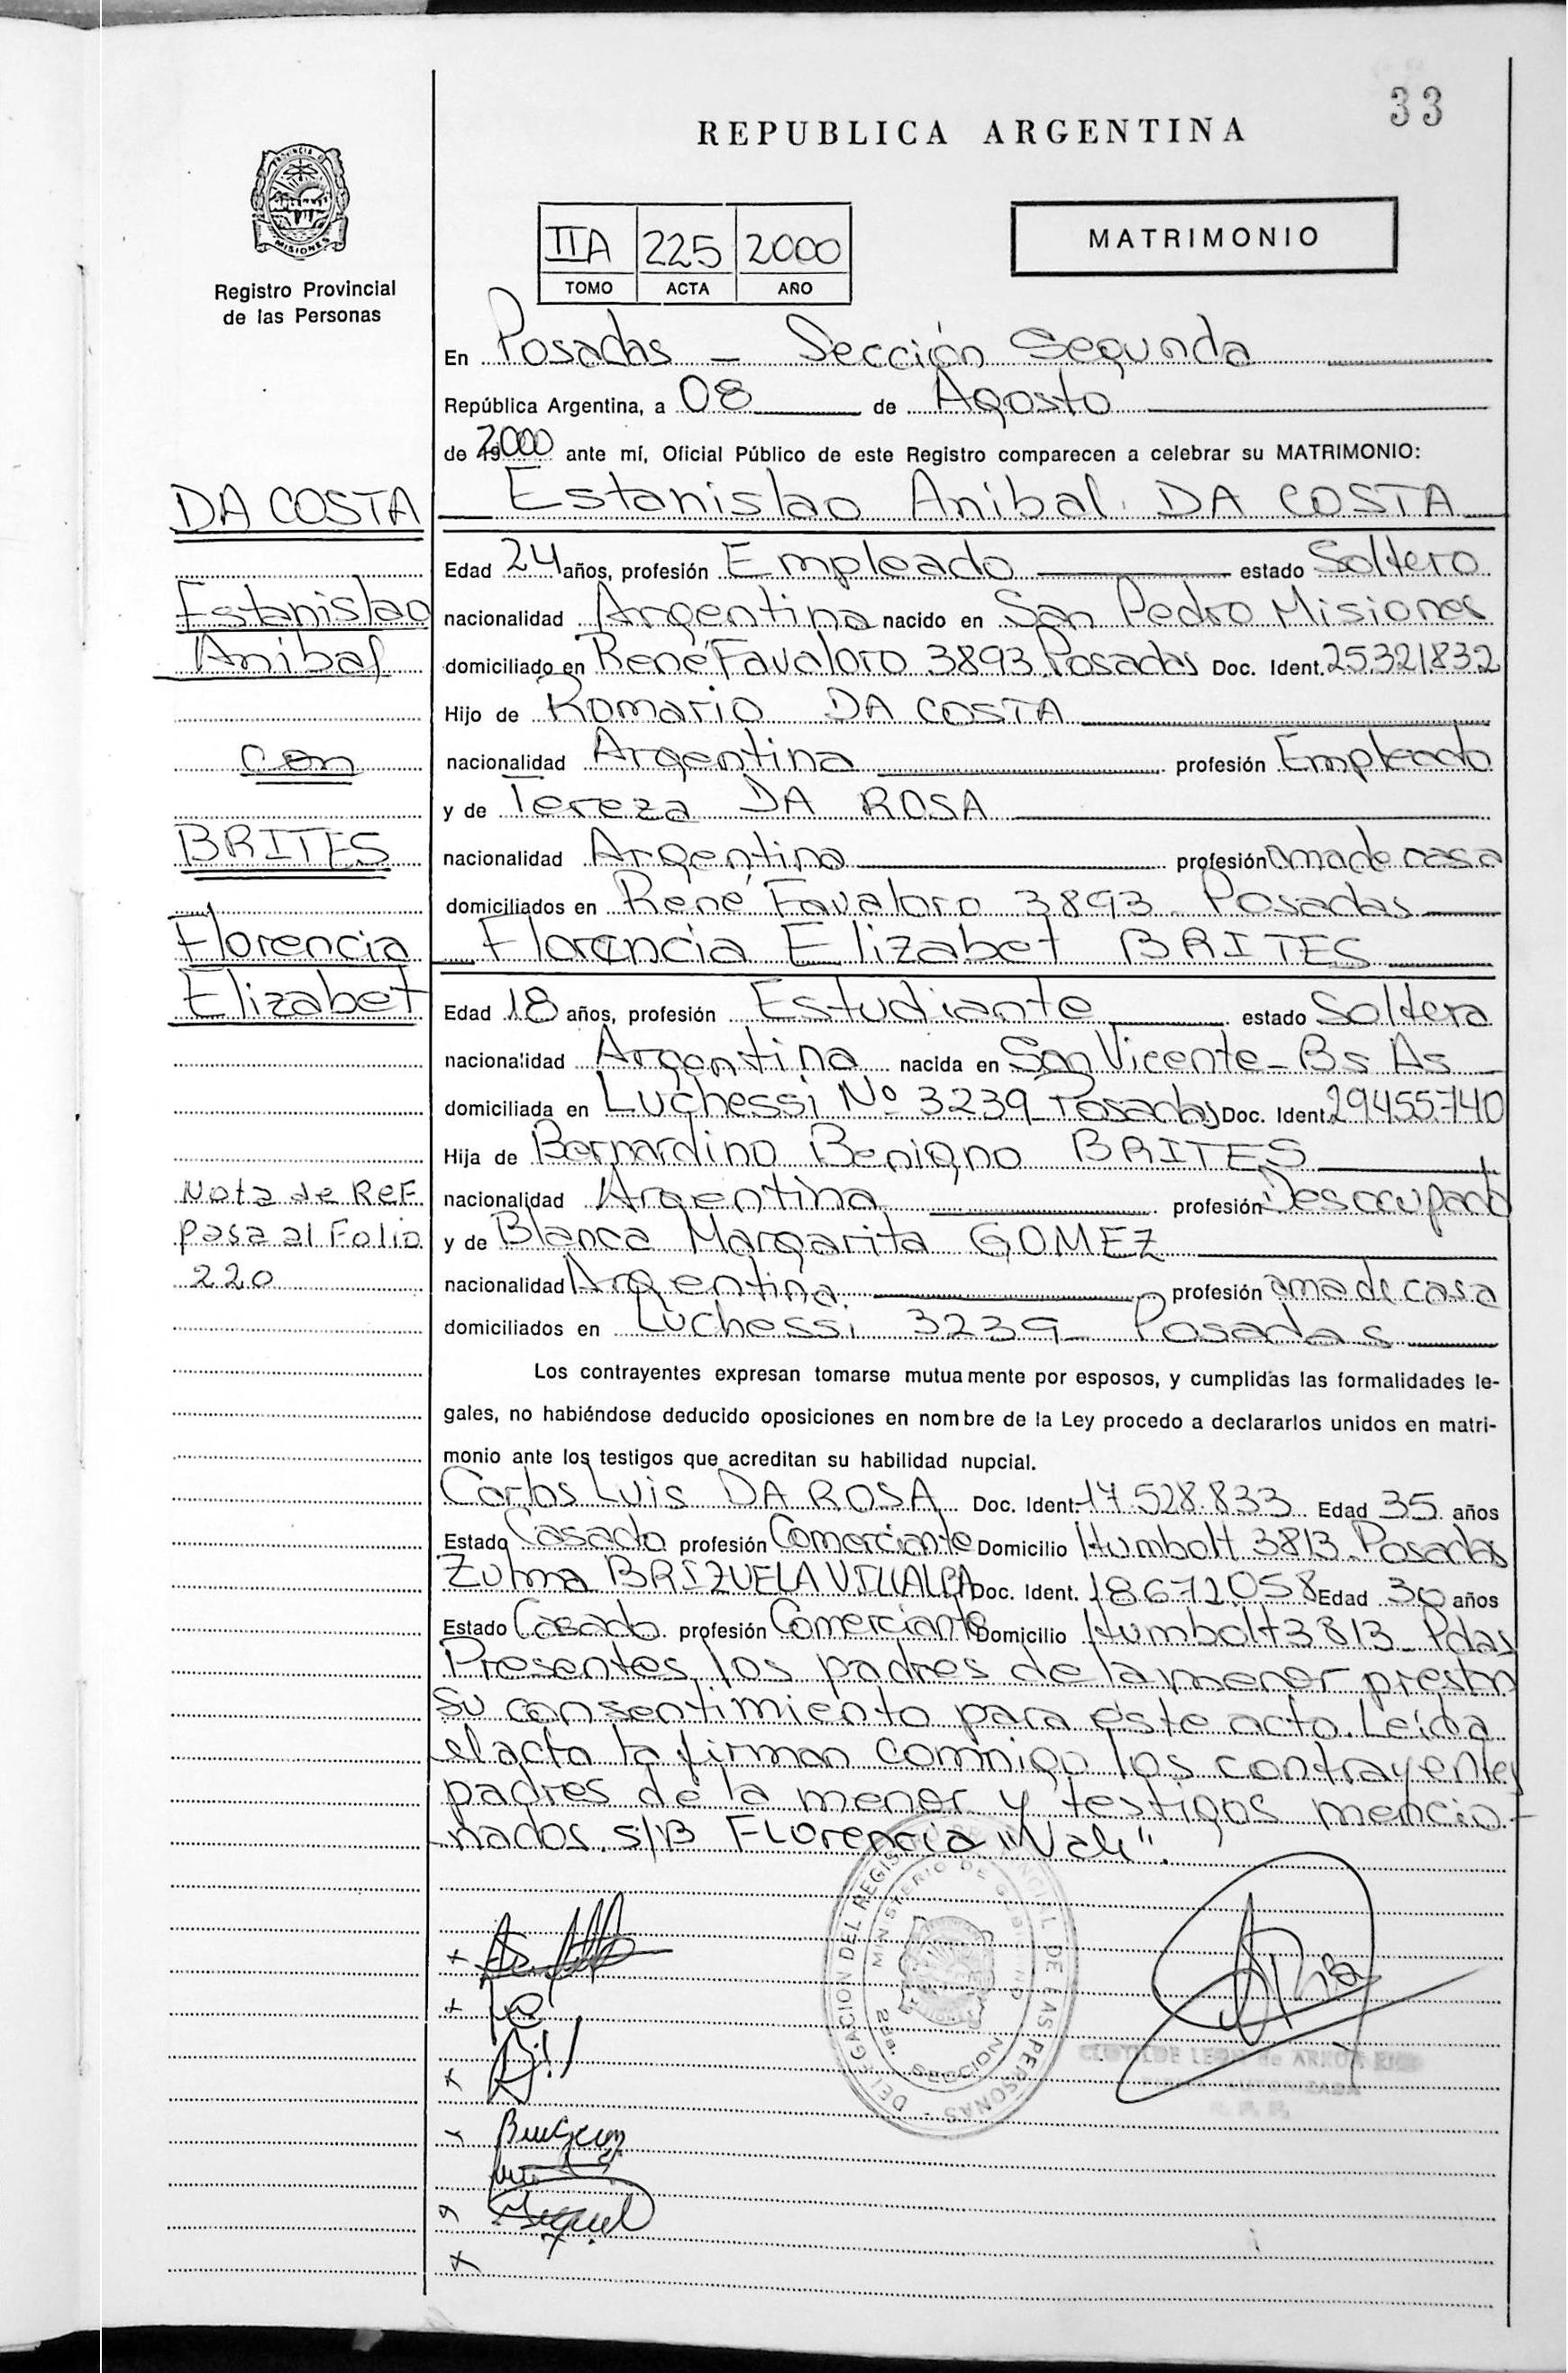 33
REPUBLICA ARGENTINA
PROVINCIA DE
MISIONES
Registro Provincial
de las Personas
IIA 225 2000
TOMO ACTA AÑO
MATRIMONIO
En Posadas - Sección Segunda
República Argentina, a 08 de Agosto
de 2000 ante mí, Oficial Público de este Registro comparecen a celebrar su MATRIMONIO:
DA COSTA
Estanislao
Anibal
con
BRITES
Florencia
Elizabet
Nota de REF.
pasa al Folio
220
Estanislao Anibal DA COSTA
Edad 24 años, profesión Empleado estado Soltero
nacionalidad Argentina nacido en San Pedro Misiones
domiciliado en René Favaloro 3893 Posadas Doc. Ident. 25.321.832
Hijo de Romario DA COSTA
nacionalidad Argentina profesión Empleado
y de Tereza DA ROSA
nacionalidad Argentina profesión ama de casa
domiciliados en René Favaloro 3893 Posadas
Florencia Elizabet BRITES
Edad 18 años, profesión Estudiante estado Soltera
nacionalidad Argentina nacida en San Vicente - Bs As
domiciliada en Luchessi Nº 3239 Posadas Doc. Ident. 29.455.740
Hija de Bernardino Benigno BRITES
nacionalidad Argentina profesión Desocupado
y de Blanca Margarita GOMEZ
nacionalidad Argentina profesión ama de casa
domiciliados en Luchessi 3239 - Posadas
Los contrayentes expresan tomarse mutuamente por esposos, y cumplidas las formalidades le-
gales, no habiéndose deducido oposiciones en nombre de la Ley procedo a declararlos unidos en matri-
monio ante los testigos que acreditan su habilidad nupcial.
Carlos Luis DA ROSA Doc. Ident. 17.528.833 Edad 35 años
Estado Casado profesión Comerciante Domicilio Humbolt 3813 - Posadas
Zulma BRIZUELA VILLALBA Doc. Ident. 18.672.058 Edad 30 años
Estado Casado profesión Comerciante Domicilio Humbolt 3813 - Pdas
Presentes los padres de la menor prestan
su consentimiento para éste acto. Leída
el acta la firman conmigo los contrayentes
padres de la menor y testigos mencio-
nados. S/B Florencia "Vale".
DELEGACION DEL REGISTRO PROVINCIAL DE LAS PERSONAS
MINISTERIO DE GOBIERNO
CLOTILDE LEON de